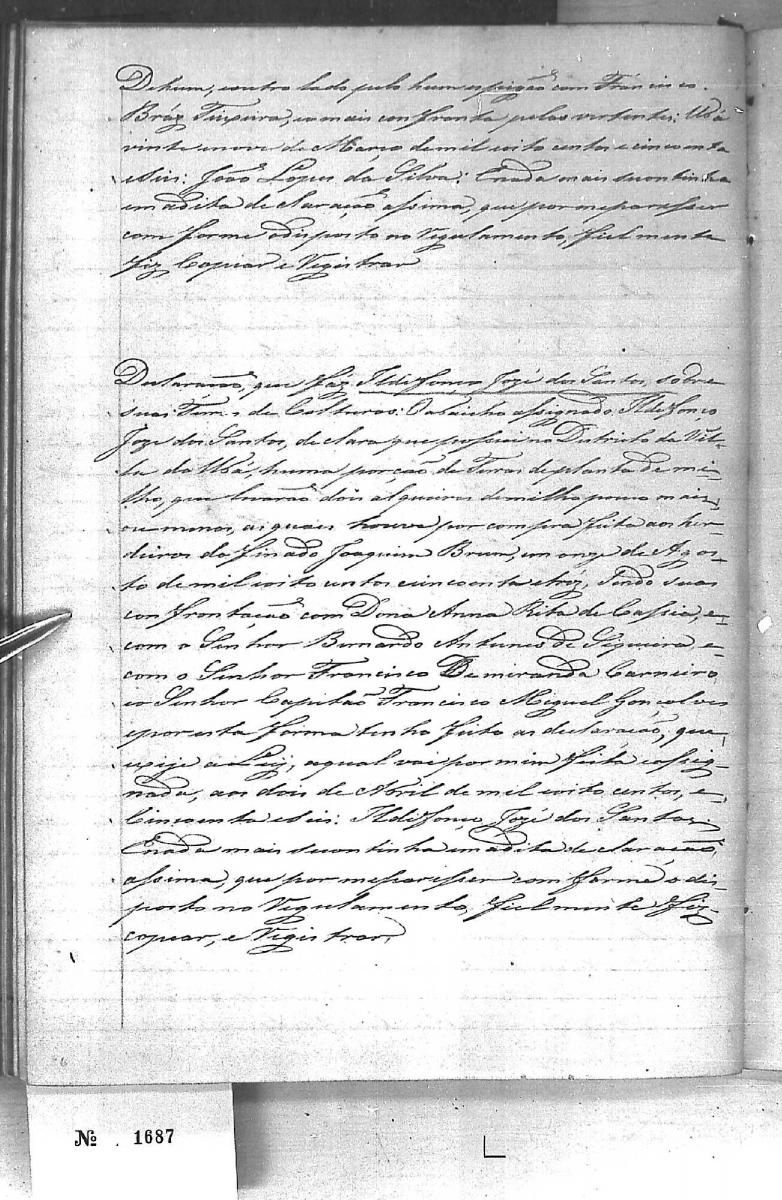 De hum, e outro lado pelo hum espigão com Francisco
Bráz Teixeira, e o mais confronta pelas vertentes: Ubá
vinte e nove de Março de mil oito centos e cincoenta
e Seis: João Lópes da Silva: Enada mais se continha
em a dita de claração assima, que por me paresser
com forme o disposto no Regulamento, fiel menta
fiz Copiar e Registrar
Declaração, que fáz Ildeffonço Jozé dos Santos, sobre
suas Terras de Culturas: O abaicho assignado, Ildeffonço
Joze dos Santos, de clara que possue no Districto da Vil-
la do Ubá, huma porção de Teras de planta de mi-
lho, que levarão dois alqueires de milho pouco mais,
ou menos, as quais houve por compra feita aos her-
deiros do finado Joaquim Brum, em onze de Agos-
to de mil oito centos e cincoenta e tréz, Sendo suas
con frontação com Dona Anna Rita de Cassia, e
com o Senhor Bernardo Antunes de Siqueira, e
com o Senhor Francisco De miranda Carneiro
e o Senhor Capitão Francisco Miguel Gonçalves
e por esta forma tenho feito as declaração, que
exije a Ley, a qual vai por mim feita e assig-
nada, aos dois de Abril de mil oito centos, e
Cincoenta e Seis: Ildeffonço Jozé dos Santos.
Enada mais se continha em a dita de claração
assima, que por me paresser com forme o dis-
posto no Regulamento, fiel mente fiz
copiar, e Registrar,
№ . 1687